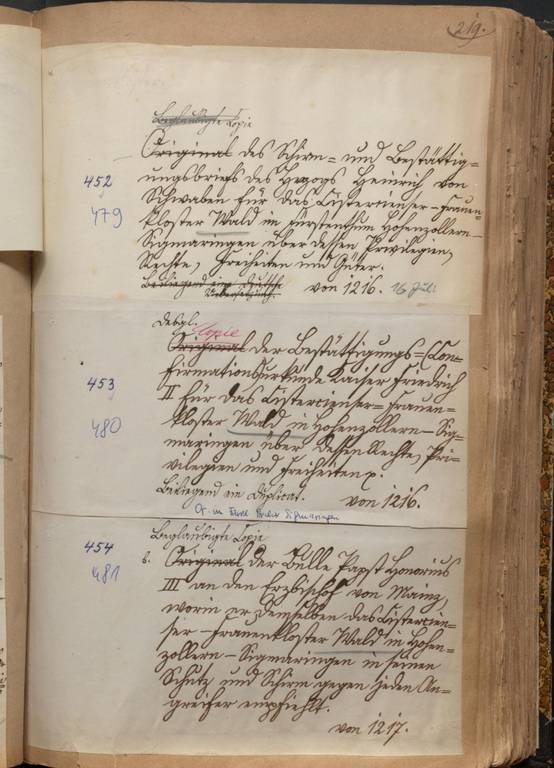 219.
Beglaubigte Copie
Original des Schirm- und Bestättig-
452
ungsbriefs des Herzogs Heinrich von
Schwaben für das Cisterzienser-Frauen-
479
kloster Wald im Fürstenthum Hohenzollern-
Sigmaringen über dessen Privilegien,
Rechte, Freiheiten und Güter.
Beiliegend eine deutsche
Uebersetzung.
von 1216. 16 Juli
Desgl.
Copie
Original der Bestättigungs-(Con-
453
firmations)urkunde Kaiser Friedrich
II für das Cistercienser-Frauen-
480
kloster Wald in Hohenzollern-Sig-
maringen über dessen Rechte, Pri-
vilegien und Freiheiten
Beiliegend ein Duplicat.
von 1216.
Or. im Fürstl. Archiv Sigmaringen
Beglaubigte Copie
454
Original der Bulle Papst Honorius
481
III an den Erzbischof von Mainz,
worin er demselben das Cistercien-
ser-Frauenkloster Wald in Hohen-
zollern-Sigmaringen in seinen
Schutz und Schirm gegen jeden An-
greifer empfiehlt.
von 1217.